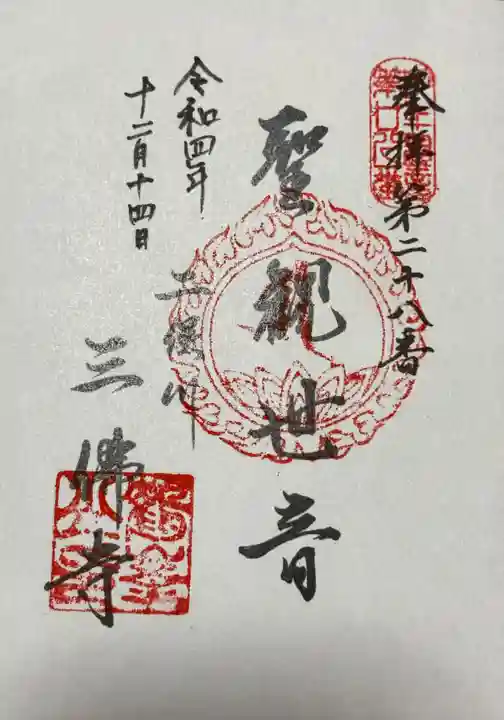 奉拝第二十八番
聖観世音
三佛寺
令和四年
十二月十四日